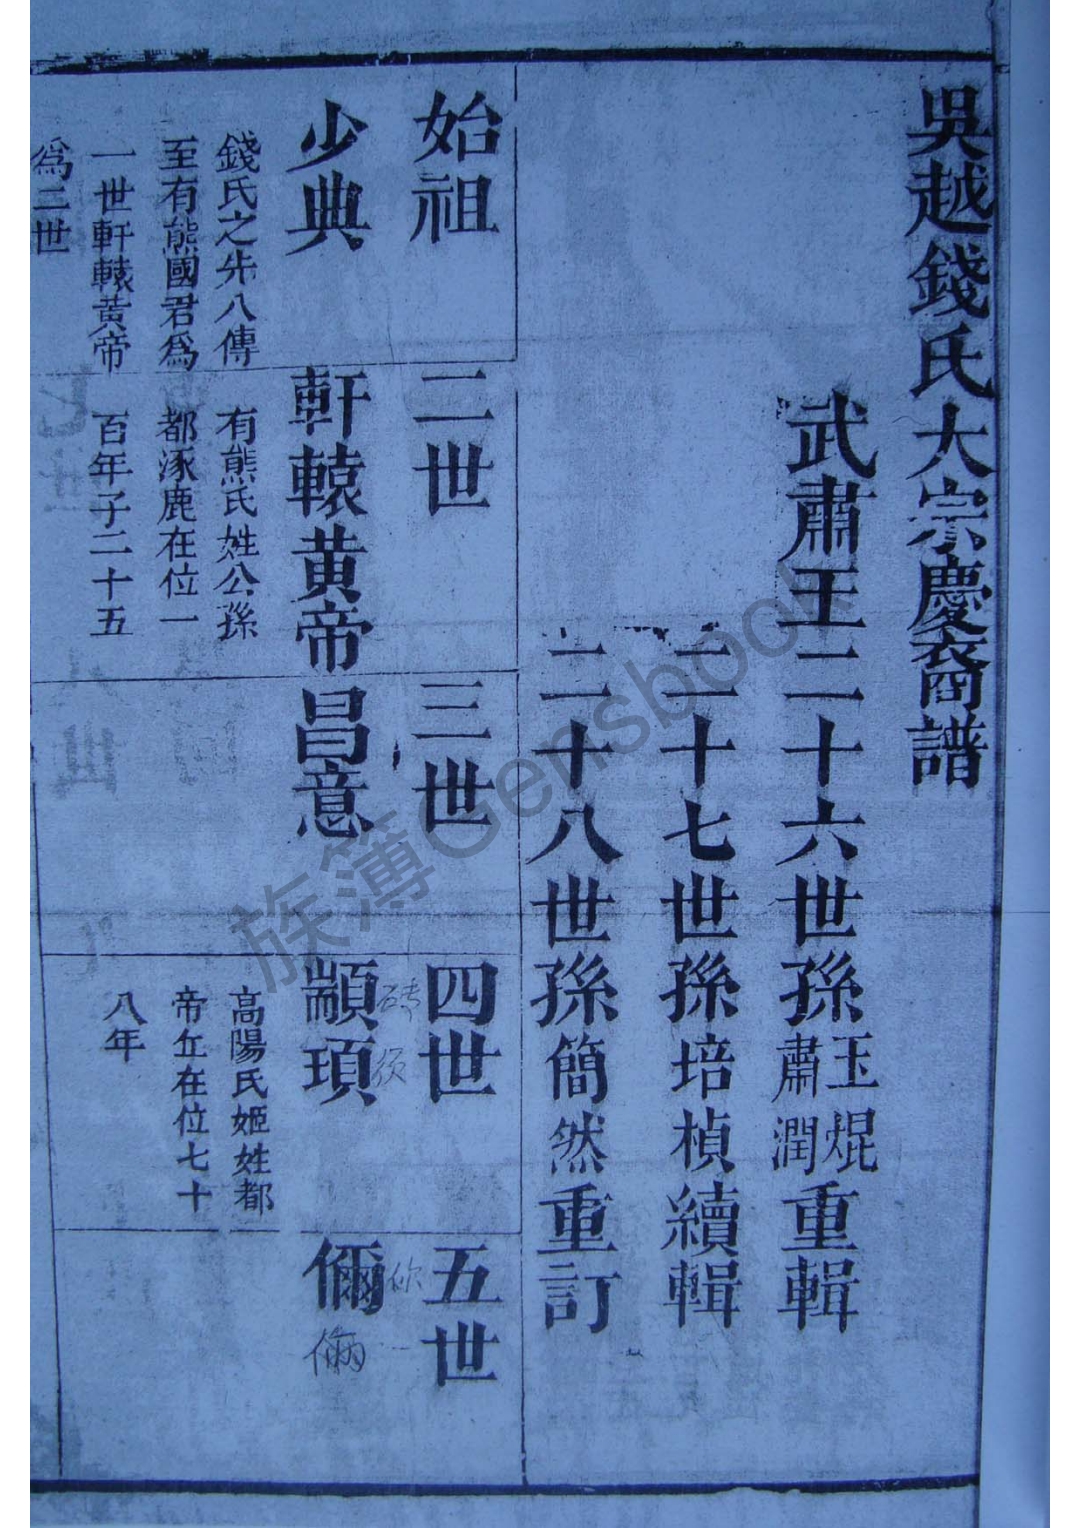 吳越錢氏大宗慶裔譜
武肅王二十六世孫玉焜肅潤重輯
二十七世孫培楨續輯
二十八世孫簡然重訂
始祖
少典
錢氏之先八傳
至有熊國君爲
一世軒轅黃帝
爲二世
二世
軒轅黃帝
有熊氏姓公孫
都涿鹿在位一
百年子二十五
三世
昌意
四世
顓頊
砖
须
高陽氏姬姓都
帝丘在位七十
八年
五世
儞
你
族簿Gensbook